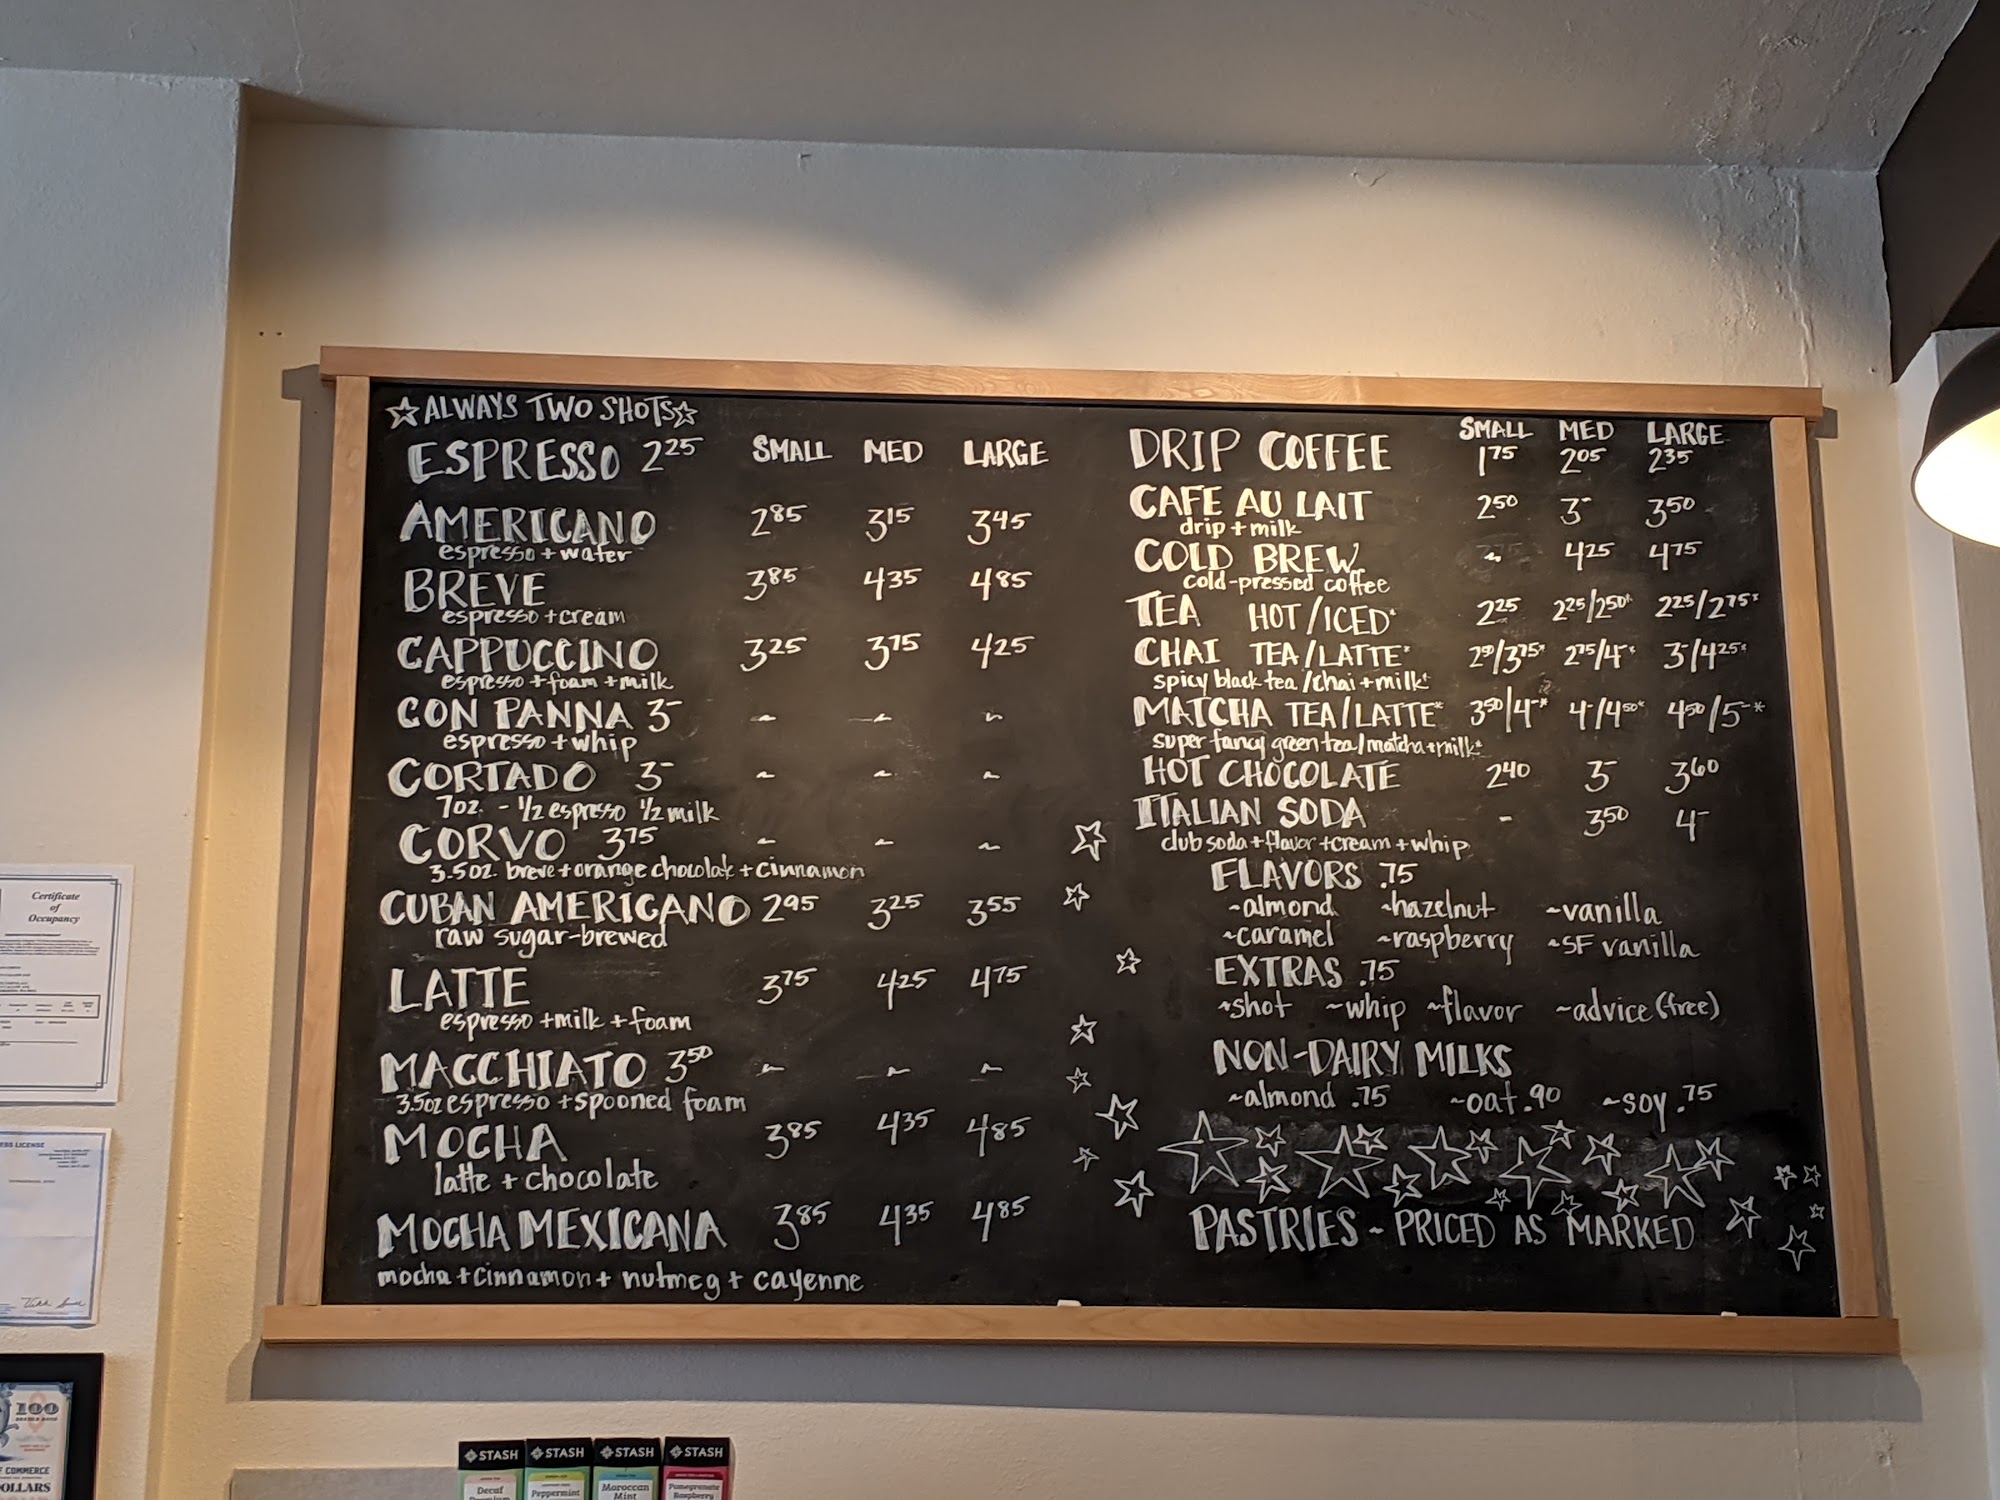 ☆ALWAYS TWO SHOTS☆
ESPRESSO 2.25 SMALL MED LARGE
AMERICANO 2.85 3.15 3.45
espresso + water
BREVE 3.85 4.35 4.85
espresso + cream
CAPPUCCINO 3.25 3.75 4.25
espresso + foam + milk
CON PANNA 3- ~ ~ ~
espresso + whip
CORTADO 3- ~ ~ ~
7oz. - 1/2 espresso 1/2 milk
CORVO 3.75 ~ ~ ~
3.5oz. breve + orange chocolate + cinnamon
CUBAN AMERICANO 2.95 3.25 3.55
raw sugar-brewed
LATTE 3.75 4.25 4.75
espresso + milk + foam
MACCHIATO 3.50 ~ ~ ~
3.5oz espresso + spooned foam
MOCHA 3.85 4.35 4.85
latte + chocolate
MOCHA MEXICANA 3.85 4.35 4.85
mocha + cinnamon + nutmeg + cayenne
SMALL MED LARGE
DRIP COFFEE 1.75 2.05 2.35
CAFE AU LAIT 2.50 3- 3.50
drip + milk
COLD BREW ~ 4.25 4.75
cold-pressed coffee
TEA HOT/ICED* 2.25 2.25/2.50* 2.25/2.75*
CHAI TEA/LATTE* 2.50/3.75* 2.75/4-* 3-/4.25*
spicy black tea/chai + milk*
MATCHA TEA/LATTE* 3.50/4-* 4-/4.50* 4.50/5-*
super fancy green tea/matcha + milk*
HOT CHOCOLATE 2.40 3- 3.60
ITALIAN SODA - 3.50 4-
club soda + flavor + cream + whip
FLAVORS .75
~almond ~hazelnut ~vanilla
~caramel ~raspberry ~SF vanilla
EXTRAS .75
~shot ~whip ~flavor ~advice (free)
NON-DAIRY MILKS
~almond .75 ~oat .90 ~soy .75
PASTRIES ~ PRICED AS MARKED
Certificate
of
Occupancy
LICENSE
100
COMMERCE
DOLLARS
STASH STASH STASH STASH
Decaf
Peppermint
Moroccan
Mint
Pomegranate
Raspberry